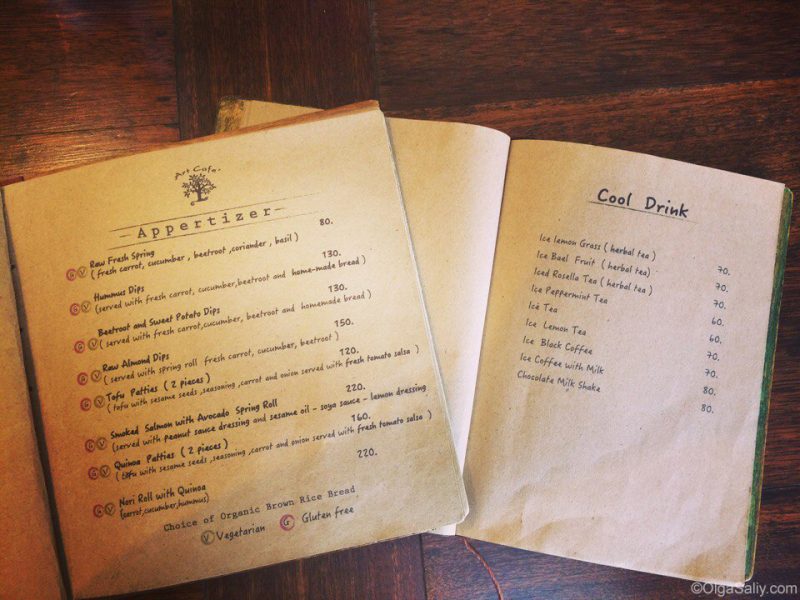 Art Cafe.
Appertizer
G V Raw Fresh Spring 80.
( fresh carrot, cucumber , beetroot ,coriander , basil )
G V Hummus Dips 130.
(served with fresh carrot, cucumber,beetroot and home-made bread )
G V Beetroot and Sweet Potato Dips 130.
( served with fresh carrot,cucumber, beetroot and homemade bread )
G V Raw Almond Dips 150.
( served with spring roll fresh carrot, cucumber, beetroot )
G V Tofu Patties ( 2 pieces ) 120.
( tofu with sesame seeds ,seasoning ,carrot and onion served with fresh tomato salsa )
G V Smoked Salmon with Avocado Spring Roll 220.
(served with peanut sauce dressing and sesame oil - soya sauce - lemon dressing
G V Quinoa Patties ( 2 pieces ) 160.
( tofu with sesame seeds ,seasoning, carrot and onion served with fresh tomato salsa )
G V Nori Roll with Quinoa 220.
(carrot,cucumber,hummus)
Choice of Organic Brown Rice Bread
V Vegetarian G Gluten free
Cool Drink
Ice lemon Grass ( herbal tea ) 70.
Ice Bael Fruit ( herbal tea) 70.
Iced Rosella Tea ( herbal tea ) 70.
Ice Peppermint Tea 60.
Ice Tea 60.
Ice Lemon Tea 70.
Ice Black Coffee 70.
Ice Coffee with Milk 80.
Chocolate Milk Shake 80.
©OlgaSally.com